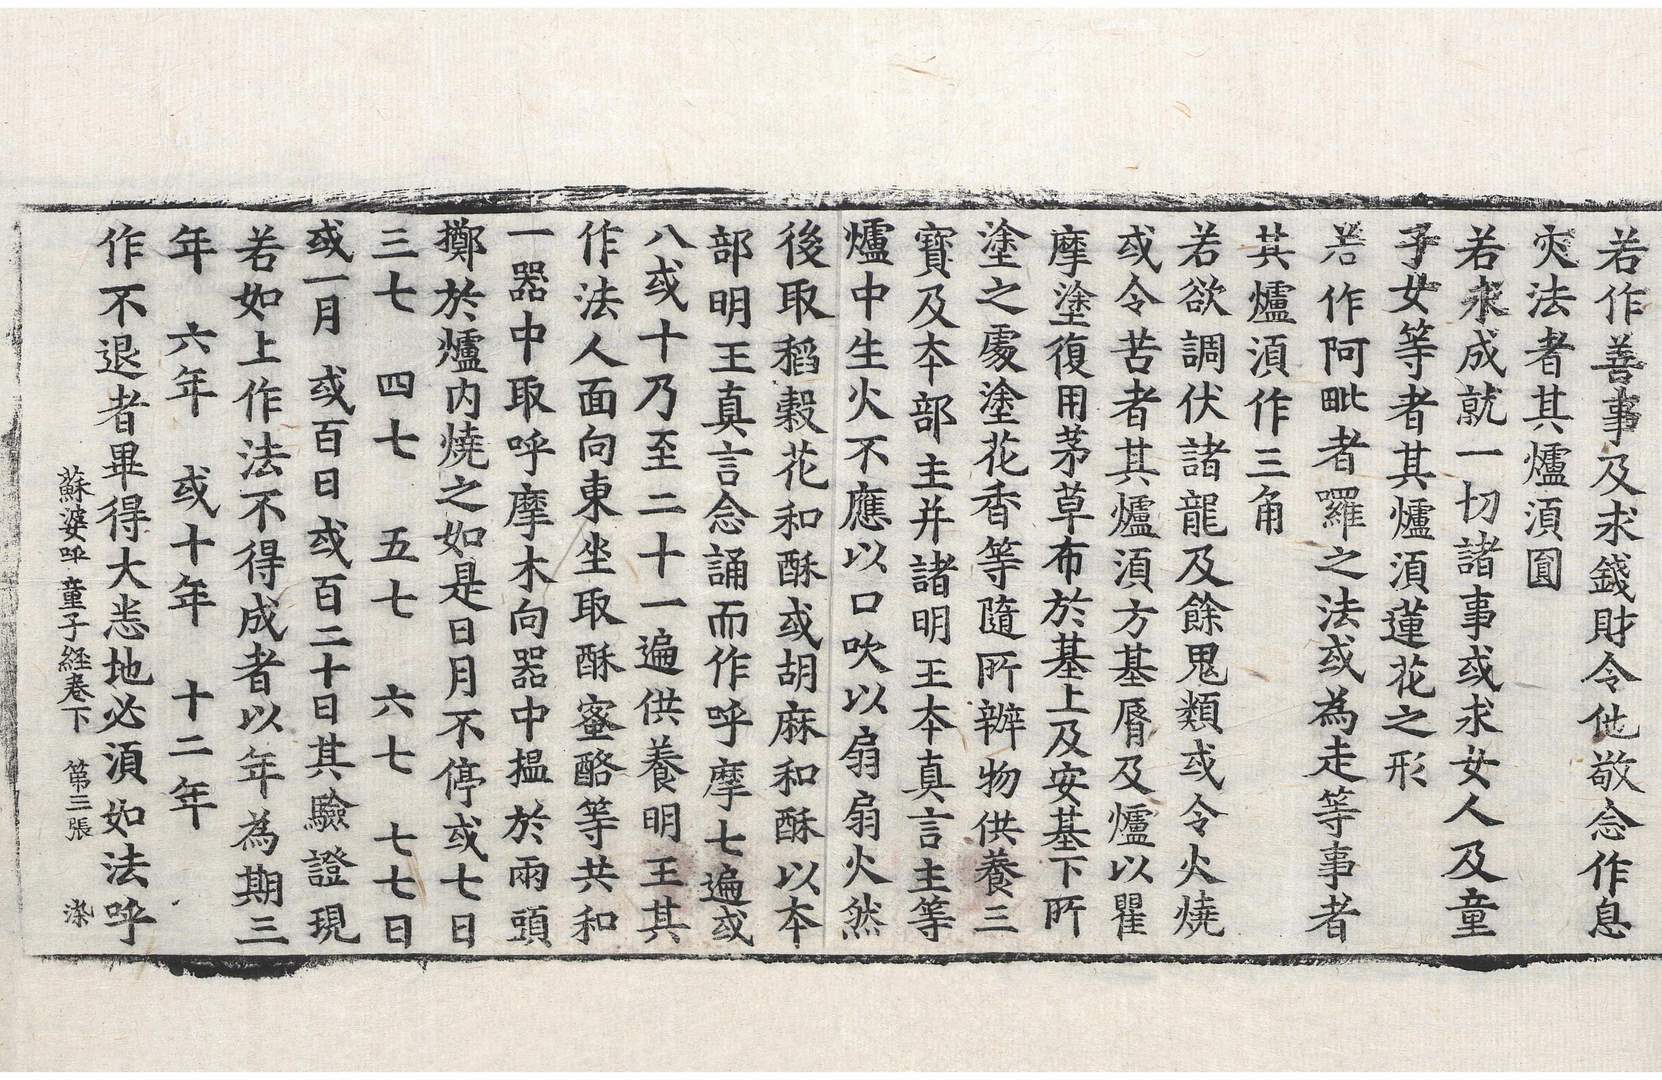 若作善事及求錢財令他敬念作息
灾法者其爐湏圎
若求成就一切諸事或求女人及童
子女等者其爐湏蓮花之形
若作阿毗者囉之法或為走等事者
其爐湏作三角
若欲調伏諸龍及餘鬼類或令火燒
或令苦者其爐湏方基脣及爐以瞿
摩塗復用茅草布於基上及安基下所
塗之處塗花香等隨所辦物供養三
寶及本部主并諸明王本真言主等
爐中生火不應以口吹以扇扇火然
後取稻穀花和酥或胡麻和酥以本
部明王真言念誦而作呼摩七遍或
八或十乃至二十一遍供養明王其
作法人面向東坐取酥蜜酪等共和
一器中取呼摩木向器中搵於兩頭
擲於爐內燒之如是日月不停或七日
三七 四七 五七 六七 七七日
或一月 或百日 或百二十日其驗證現
若如上作法不得成者以年為期三
年 六年 或十年 十二年
作不退者畢得大悉地必湏如法呼
蘇婆呼童子経卷下 第三張 㓗